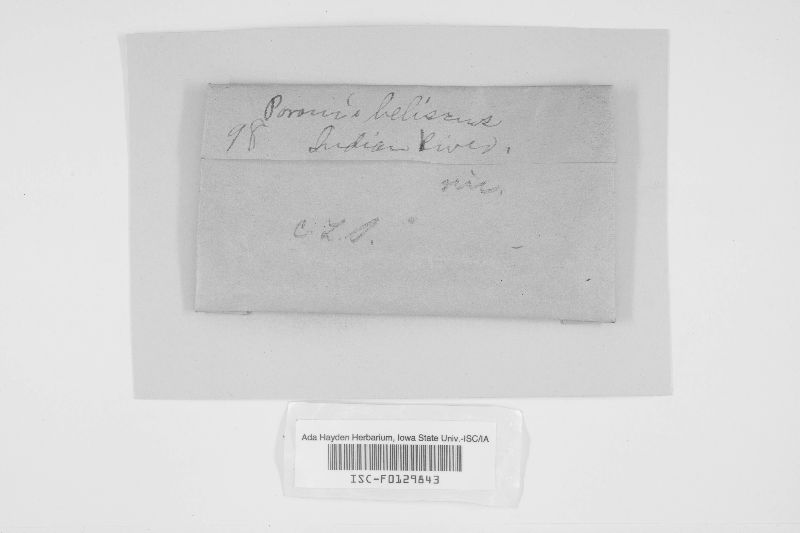 Poronia beliscus
98 Indian River.
C. L. S.
Ada Hayden Herbarium, Iowa State Univ.-ISC/IA
ISC-F0129843